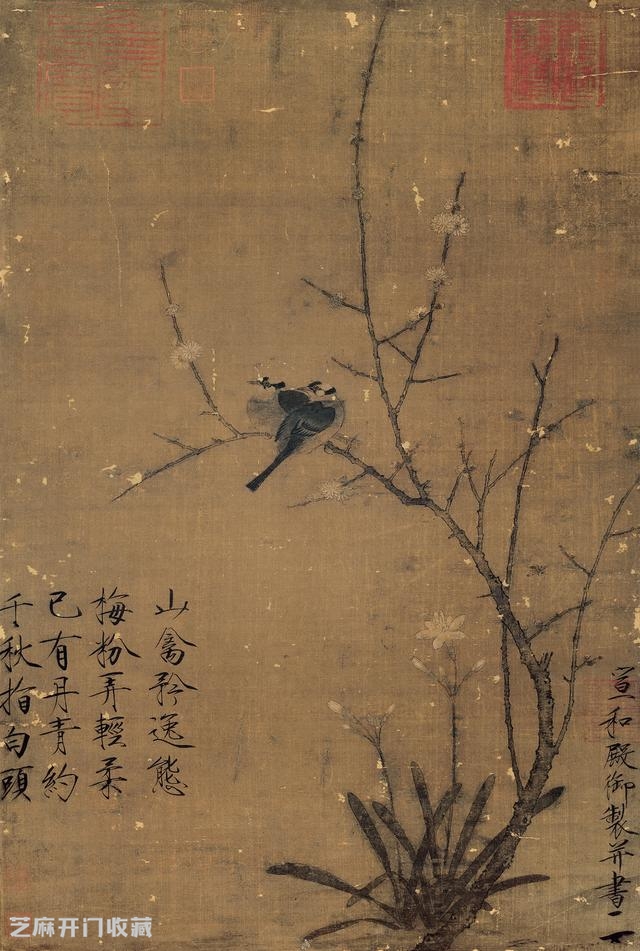 山禽矜逸態
梅粉弄輕柔
已有丹青約
千秋指白頭
宣和殿御製并書
芝麻开门收藏